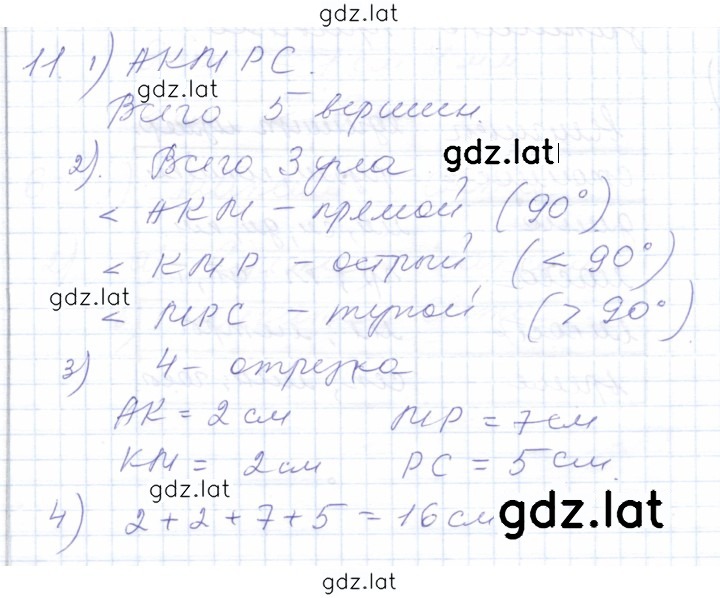 gdz.lat
11. 1) АКМРС.
gdz.lat
Всего 5 вершин.
2). Всего 3 угла
gdz.lat
< АКМ – прямой, (90°)
< КМР – острый, (< 90°)
gdz.lat
< МРС – тупой, (> 90°)
3) 4 – отрезка
АК = 2 см МР = 7 см
КМ = 2 см РС = 5 см.
gdz.lat
4) 2 + 2 + 7 + 5 = 16 см
gdz.lat
gdz.lat